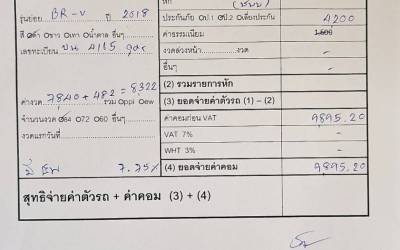 หัก (ชั้น1)
รุ่นย่อย BR-V ปี 2018
ประกันภัย ป1. ป2 เปลี่ยนประกัน 4200
สี ดำ ขาว เทา น้ำตาล อื่นๆ
ค่าธรรมเนียม 1,500
เลขทะเบียน ขน 4115
งวดล่วงหน้า............งวด -
อื่นๆ -
(2) รวมรายการหัก
ค่างวด 7840 + 482 = 8322 รวม ppi ew
(3) ยอดจ่ายค่าตัวรถ (1) – (2)
จำนวนงวด 84 72 60 อื่นๆ
ค่าคอมก่อน VAT 9895.20
งวดแรกวันที่
VAT 7% -
WHT 3% -
7.75%
(4) ยอดจ่ายค่าคอม 9895.20
สุทธิจ่ายค่าตัวรถ + ค่าคอม (3) + (4)